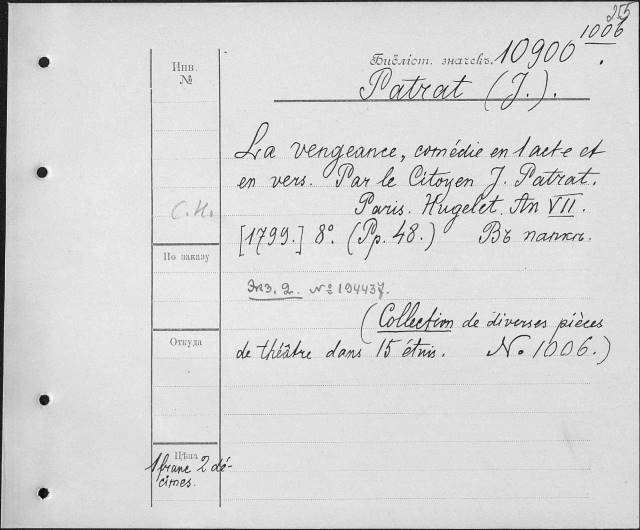 255
Библіот. значекъ. 10900 1006
Инв.
№
Patrat (J.).
La vengeance, comédie en 1 acte et
en vers. Par le Citoyen J. Patrat.
Paris. Hugelet. An VII.
С.Н.
[1799.] 8º. (Pp. 48.) Въ папкѣ.
По заказу
Экз. 2. № 194437.
(Collection de diverses pièces
Откуда
de théâtre dans 15 étuis. No. 1006.)
Цѣна
1 franc 2 dé-
cimes.